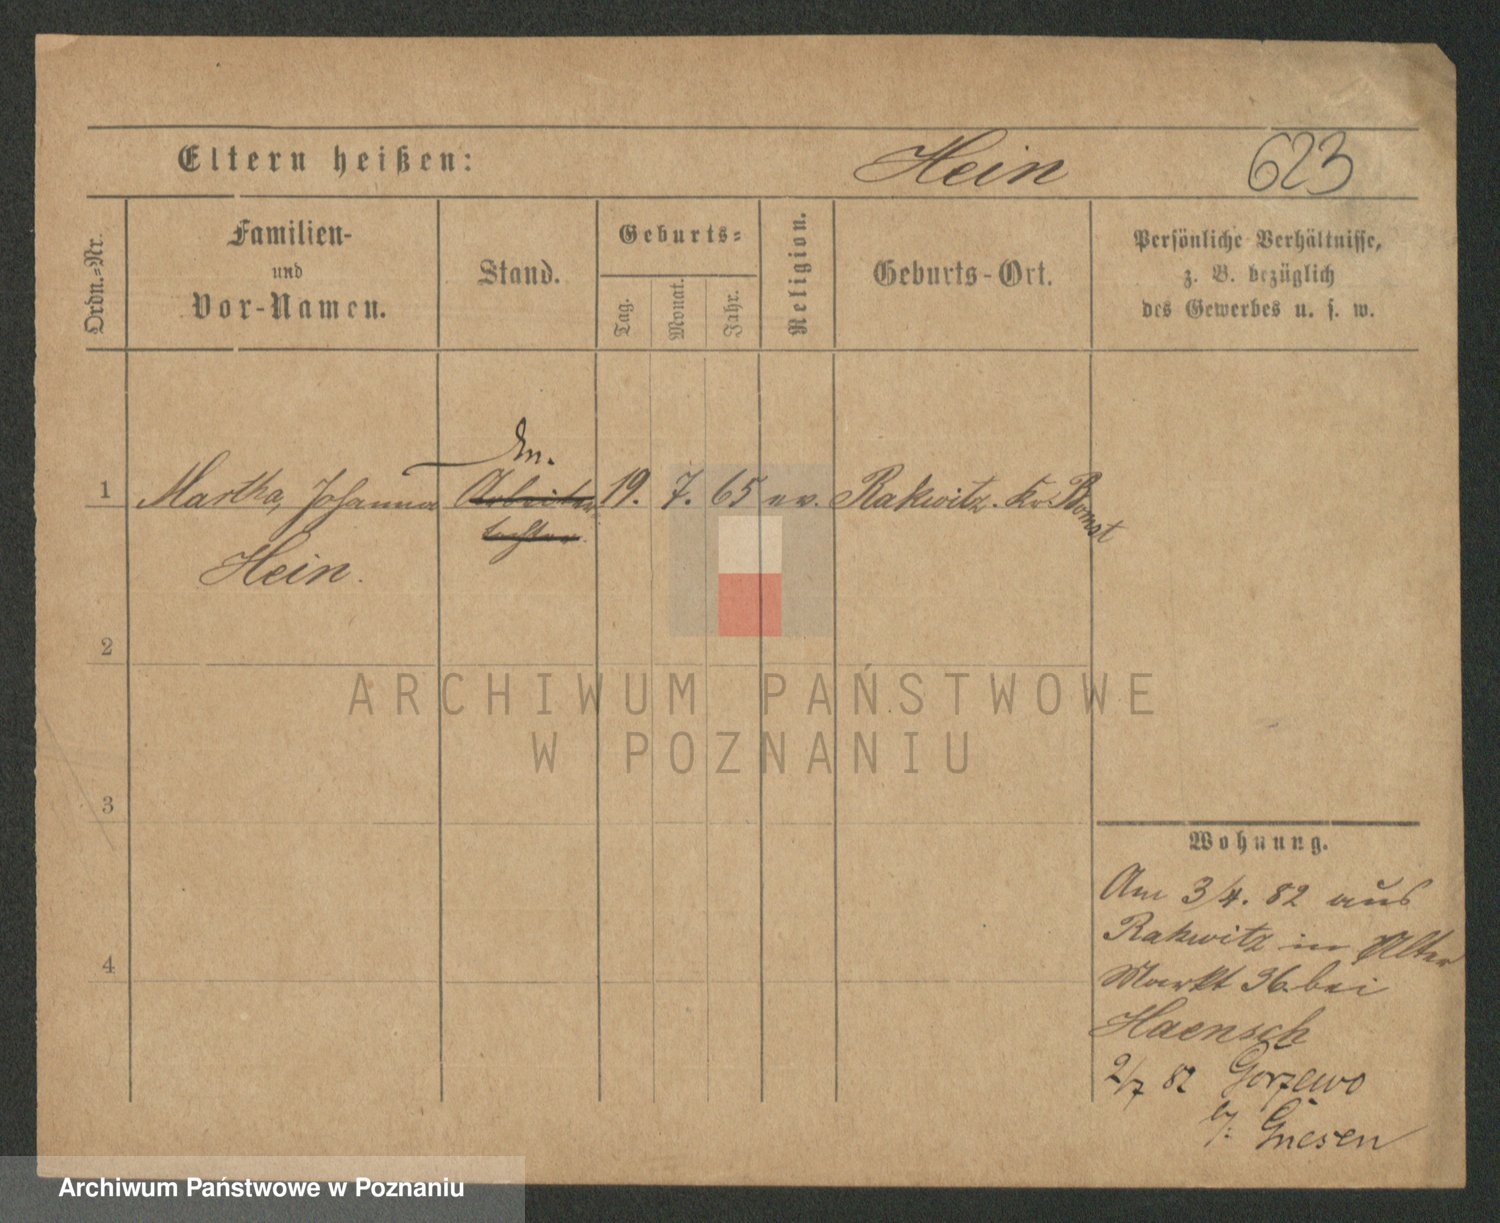 Eltern heißen: Hein 623
Ordn.=Nr.
Familien-
und
Vor-Namen.
Stand.
Geburts=
Tag. Monat. Jahr.
Religion.
Geburts-Ort.
Persönliche Verhältnisse,
z. B. bezüglich
des Gewerbes u. s. w.
1 Martha, Johanna Arbeiter 19. 7. 65 ev. Rakwitz. Kr. Bomst
tochter
Hein.
2
3
4
ARCHIWUM PAŃSTWOWE
W POZNANIU
Wohnung.
Am 3/4. 82 aus
Rakwitz in Alter
Markt 36 bei
Haensch
2/7 82 Gorzewo
b/: Gnesen
Archiwum Państwowe w Poznaniu